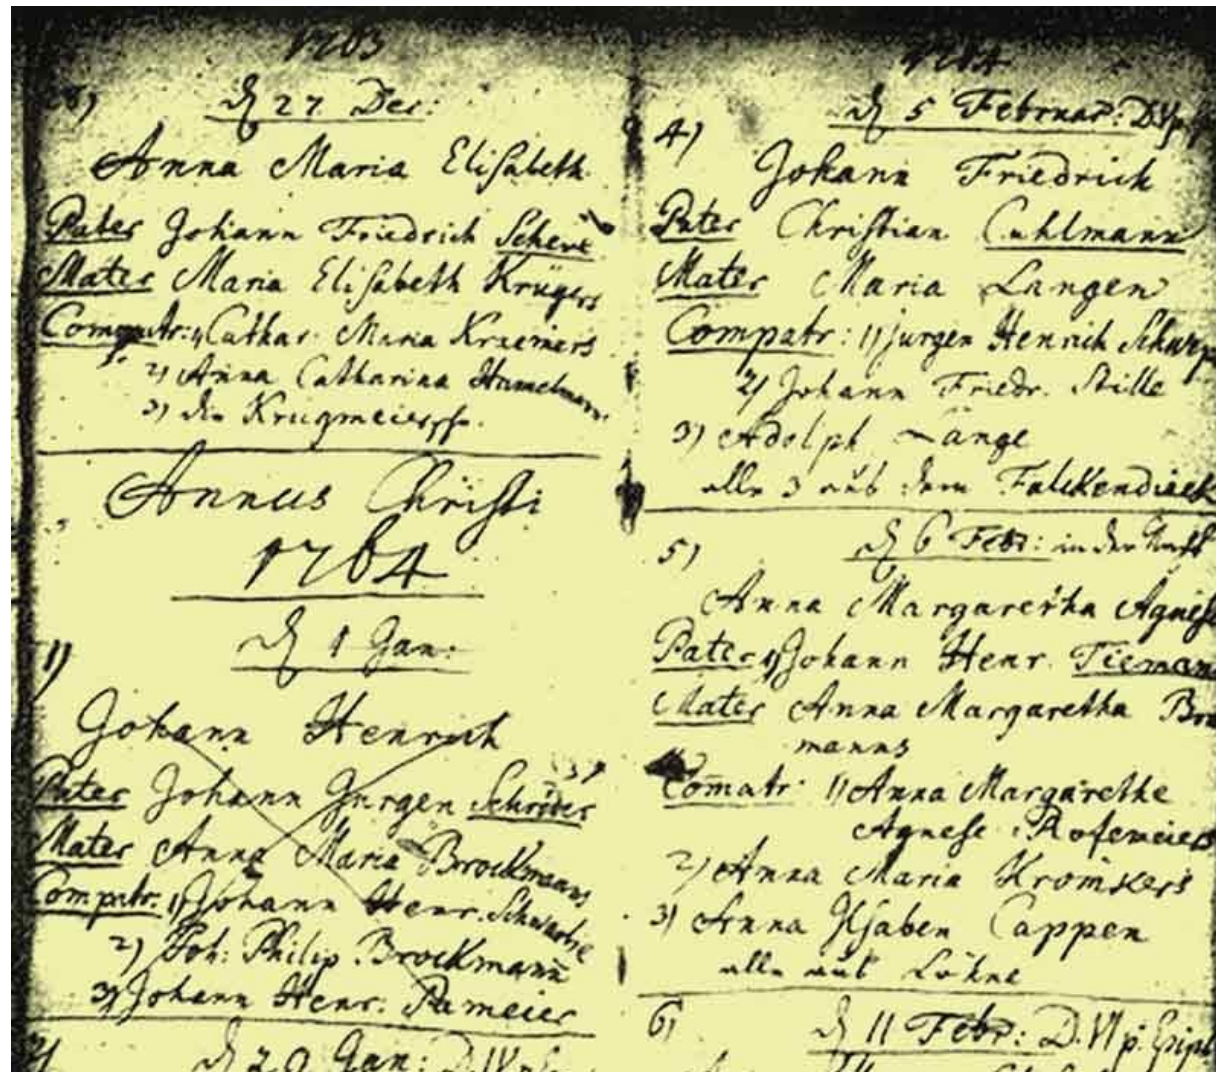 1763
28) d 27 Dec:
Anna Maria Elisabeth
Pater Johann Friedrich Schene
Mater Maria Elisabeth Krügers
Compatr: 1) Cathar. Maria Kraemers
2) Anna Catharina Hamelmanns
3) die Krugmeiersch.
Annus Christi
1764
d 1 Jan:
1)
Johann Henrich
Pater Johann Jurgen Schröder
Mater Anna Maria Brockmanns
Compatr. 1) Johann Henr. Schwartze
2) Joh: Philip Brockmann
3) Johann Henr. Pameier
2) d 29 Jan:
1764
d 5 Februar:
4)
Johann Friedrich
Pater Christian Cuhlmann
Mater Maria Langen
Compatr: 1) Jurgen Henrich
2) Johann Friedr. Stille
3) Adolph Lange
alle 3 aus dem Falckendieck
5) d 6 Febr: in der Nacht
Anna Margaretha Agnese
Pater Johann Henr. Tieman
Mater Anna Margaretha
manns
Comatr: 1) Anna Margarethe
Agnese Rosemeiers
2) Anna Maria Kromkers
3) Anna Ilsaben Cappen
alle aus Löhne
6) d 11 Febr: D. VI p. Epiph